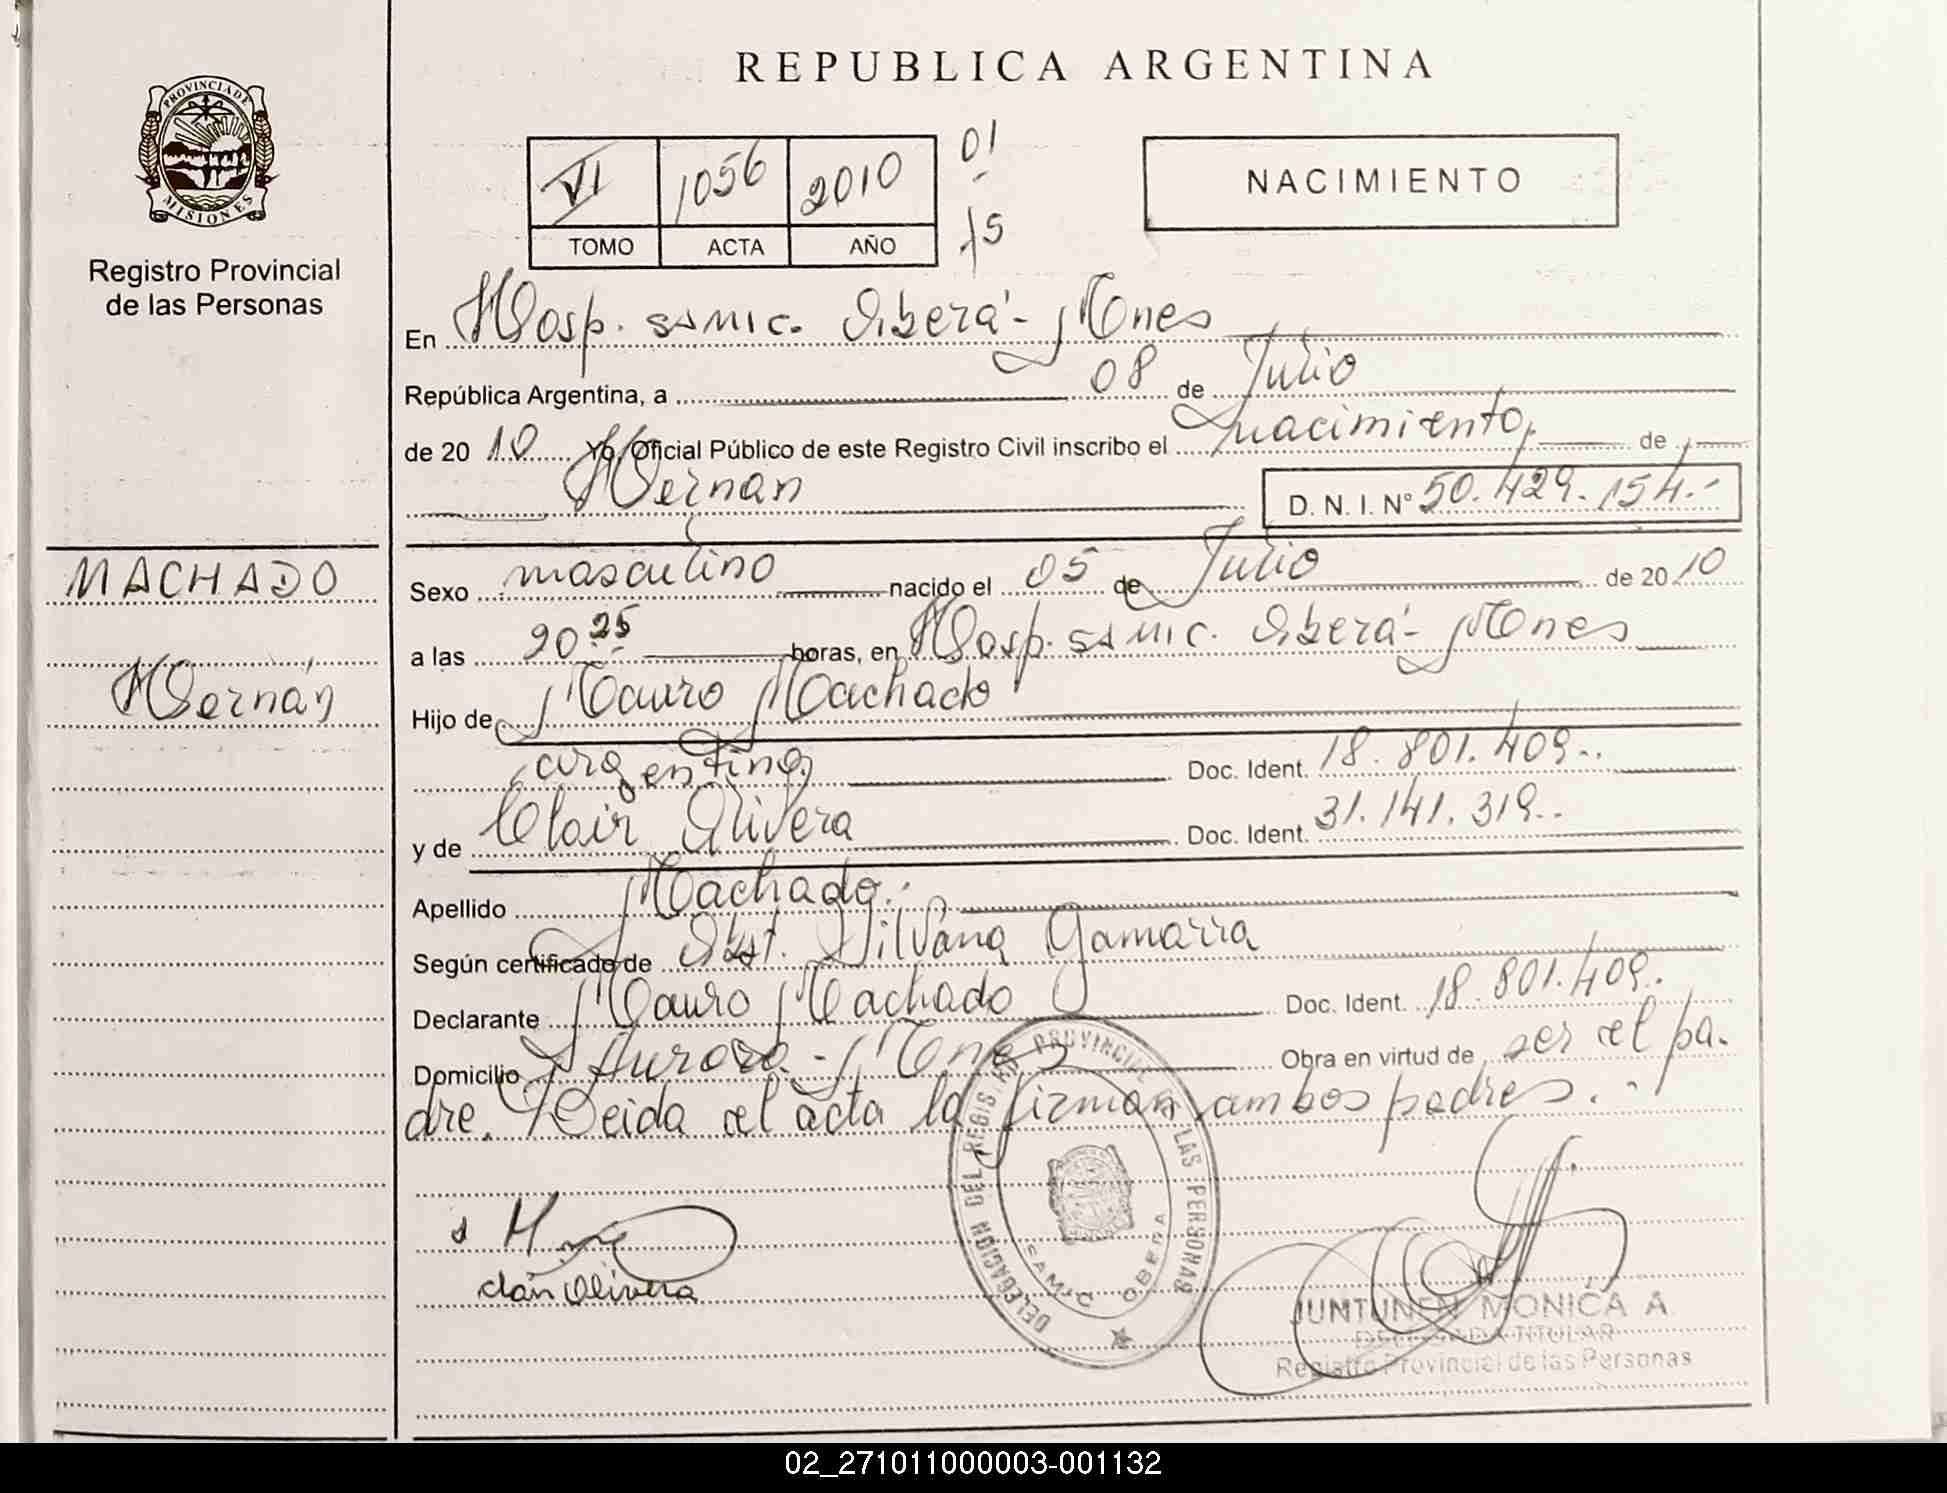 REPUBLICA ARGENTINA
PROVINCIA DE
MISIONES
Registro Provincial
de las Personas
VI 1056 2010 01
TOMO ACTA AÑO 15
NACIMIENTO
En Hosp. SAMIC. Oberá - Mnes
República Argentina, a 08 de Julio
de 2010 Yo, Oficial Público de este Registro Civil inscribo el nacimiento, de
Hernán D. N. I. Nº 50.429.154.-
MACHADO
Hernán
Sexo masculino nacido el 05 de Julio de 2010
a las 20 25 horas, en Hosp. SAMIC. Oberá - Mnes
Hijo de Mauro Machado
argentino, Doc. Ident. 18.801.409..
y de Clair Olivera Doc. Ident. 31.141.319..
Apellido Machado.
Según certificado de Obst. Silvana Gamarra
Declarante Mauro Machado Doc. Ident. 18.801.409.
Domicilio Aurora - Mnes Obra en virtud de ser el pa-
dre. Leida el acta la firman ambos padres.-
DELEGACION DEL REGISTRO PROVINCIAL DE LAS PERSONAS
SAMIC OBERA
Clair Olivera
JUNTUNEN MONICA A.
DELEGADA TITULAR
Registro Provincial de las Personas
02_271011000003-001132